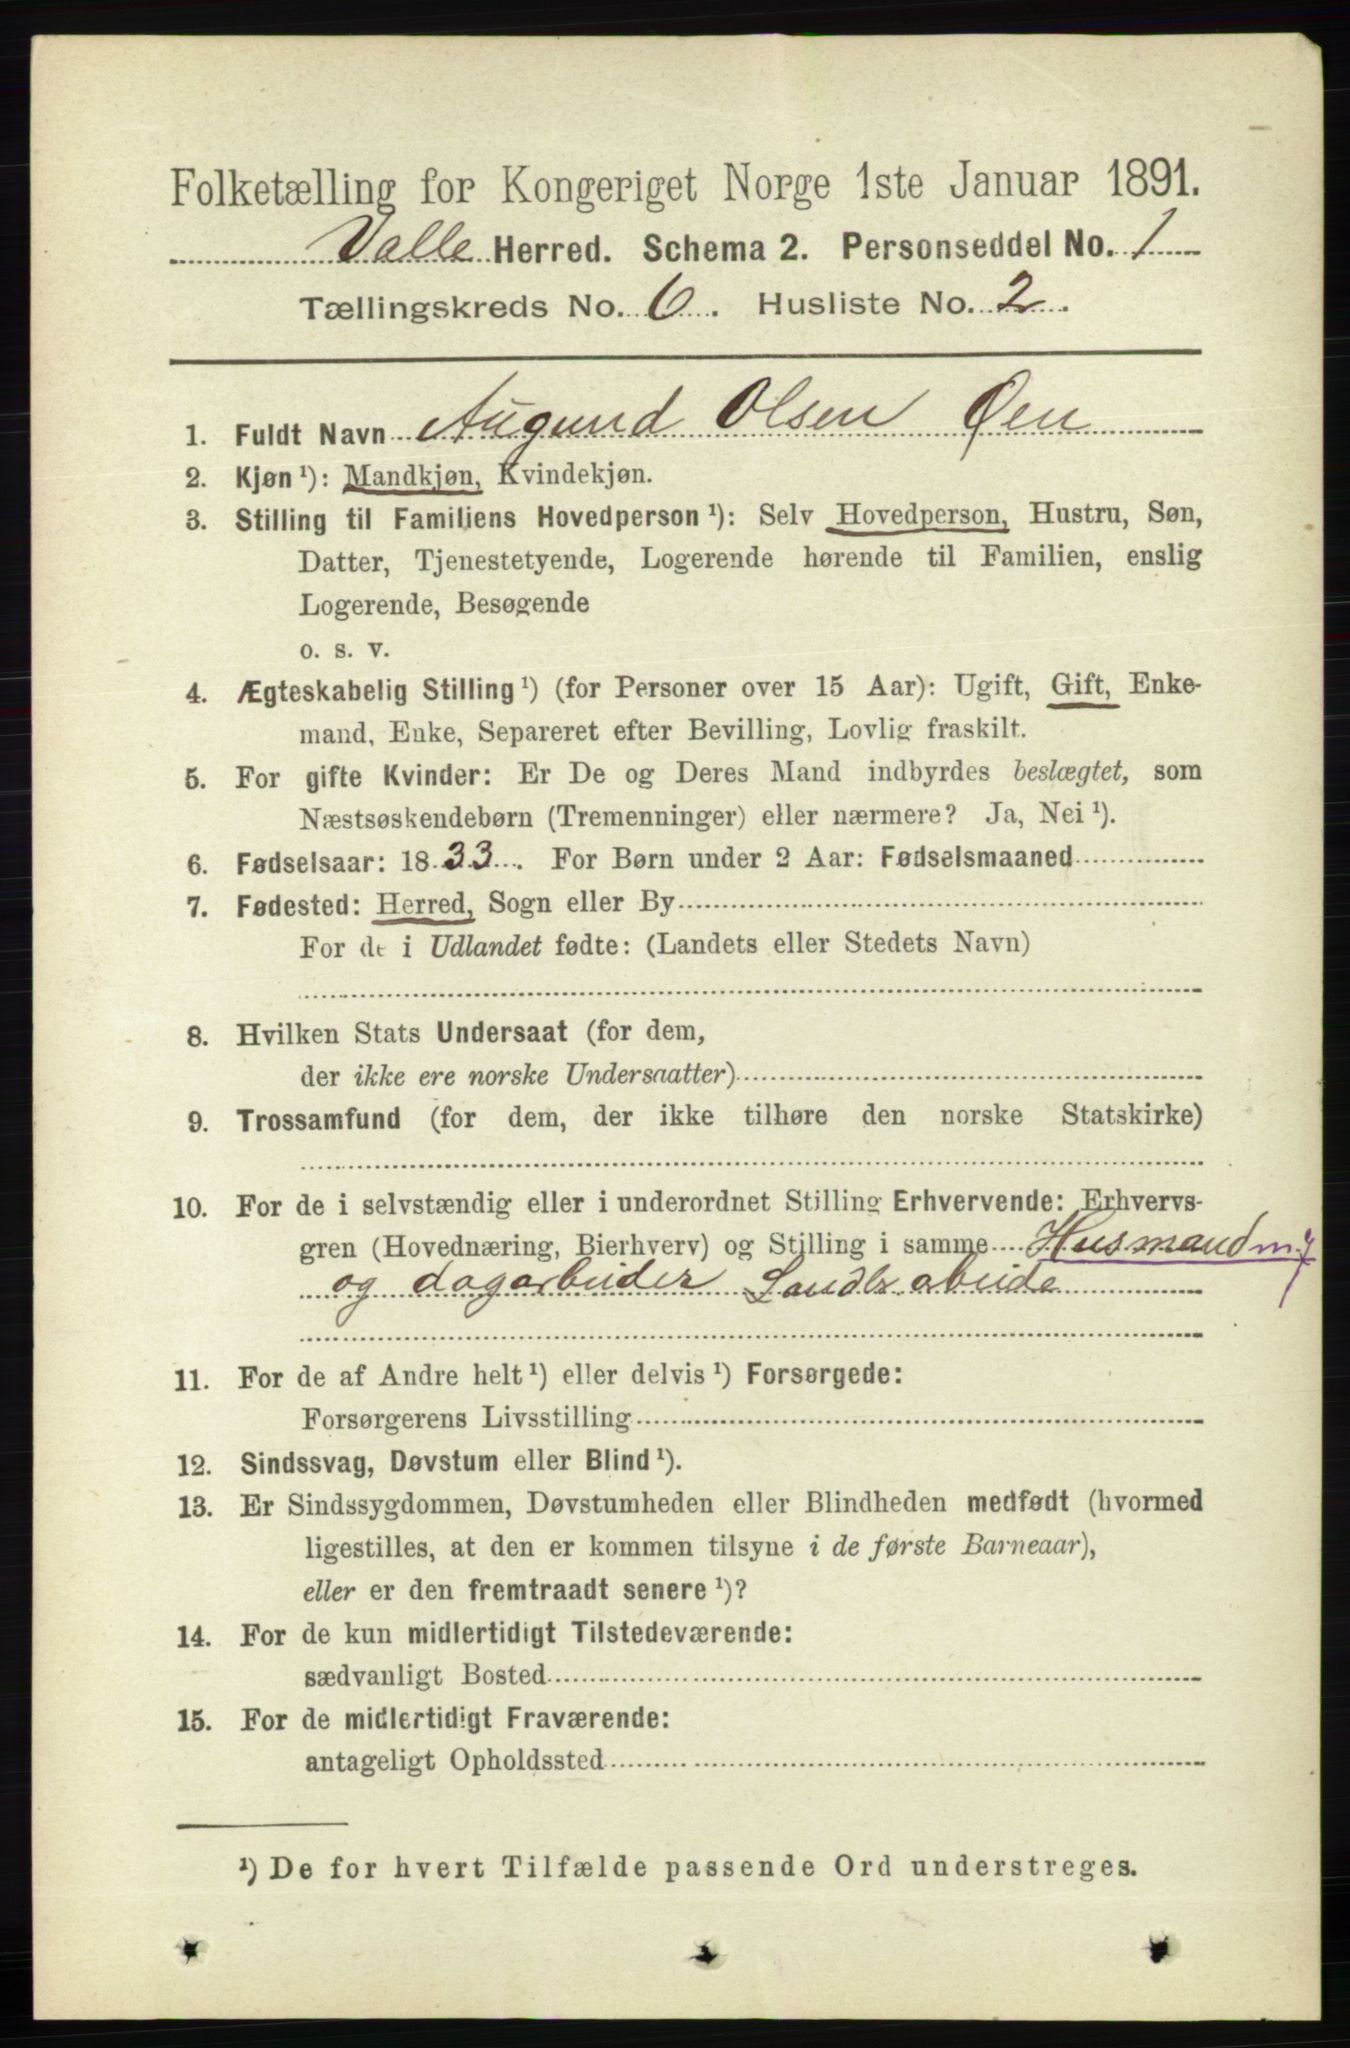 Folketælling for Kongeriget Norge 1ste Januar 1891.
Valle Herred. Schema 2. Personseddel No. 1
Tællingskreds No. 6. Husliste No. 2.
1. Fuldt Navn Augund Olsen Øen
2. Kjøn ¹): Mandkjøn, Kvindekjøn.
3. Stilling til Familiens Hovedperson ¹): Selv Hovedperson, Hustru, Søn,
Datter, Tjenestetyende, Logerende hørende til Familien, enslig
Logerende, Besøgende
o. s. v.
4. Ægteskabelig Stilling ¹) (for Personer over 15 Aar): Ugift, Gift, Enke-
mand, Enke, Separeret efter Bevilling, Lovlig fraskilt.
5. For gifte Kvinder: Er De og Deres Mand indbyrdes beslægtet, som
Næstsøskendebørn (Tremenninger) eller nærmere? Ja, Nei ¹).
6. Fødselsaar: 1833. For Børn under 2 Aar: Fødselsmaaned
7. Fødested: Herred, Sogn eller By
For de i Udlandet fødte: (Landets eller Stedets Navn)
8. Hvilken Stats Undersaat (for dem,
der ikke ere norske Undersaatter)
9. Trossamfund (for dem, der ikke tilhøre den norske Statskirke)
10. For de i selvstændig eller i underordnet Stilling Erhvervende: Erhvervs-
gren (Hovednæring, Bierhverv) og Stilling i samme Husmand m. j
og dagarbeider Landbr. arbeide
11. For de af Andre helt ¹) eller delvis ¹) Forsørgede:
Forsørgerens Livsstilling
12. Sindssvag, Døvstum eller Blind ¹).
13. Er Sindssygdommen, Døvstumheden eller Blindheden medfødt (hvormed
ligestilles, at den er kommen tilsyne i de første Barneaar),
eller er den fremtraadt senere ¹)?
14. For de kun midlertidigt Tilstedeværende:
sædvanligt Bosted
15. For de midlertidigt Fraværende:
antageligt Opholdssted
¹) De for hvert Tilfælde passende Ord understreges.